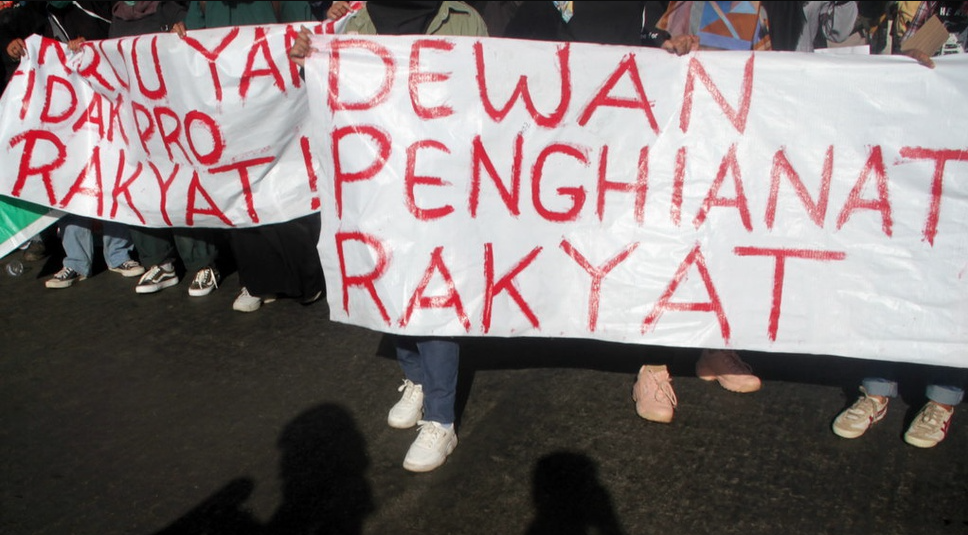 YAN
IDAK PRO
RAKYAT !
DEWAN
PENGHIANAT
RAKYAT